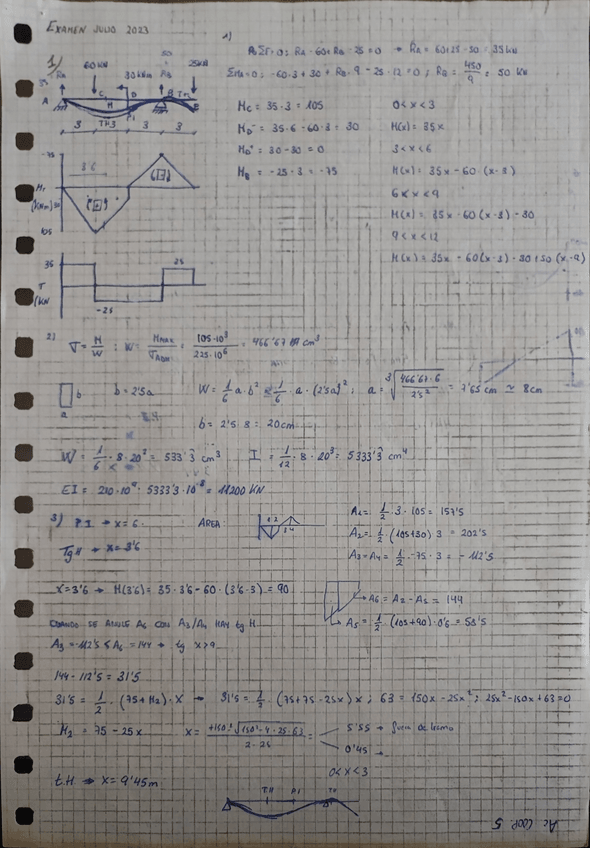 EXAMEN JULIO 2023
1)
1)
60 KN
50
25KN
35
RA
30 KNm
RB
A
C
D
B
E
3 3 3 3
-75
3'6
MF
(KNm)
105
35
25
T
(KN
-25
ΣF=0; RA - 60 + RB - 25 = 0 → RA = 60+25-50 = 35 KN
ΣMA=0; -60·3 + 30 + RB·9 - 25·12 = 0; RB = 450/9 = 50 KN
MC = 35·3 = 105
MD⁻ = 35·6 - 60·3 = 30
MD⁺ = 30-30 = 0
MB = -25·3 = -75
0<x<3
M(x) = 35x
3<x<6
M(x) = 35x - 60·(x-3)
6<x<9
M(x) = 35x - 60(x-3) - 30
9<x<12
M(x) = 35x - 60(x-3) - 30 + 50(x-9)
2)
σ = M/W; W = Mmax/σadm = 105·10³/225·10⁶ = 466'67 cm³
b
a
b = 2'5a
W = 1/6 a·b² = 1/6·a·(2'5a)²; a = ∛(466'67·6/2'5²) = 7'65 cm ≃ 8cm
b = 2'5·8 = 20cm
W = 1/6·8·20² = 533'3 cm³ I = 1/12·8·20³ = 5333'3 cm⁴
EI = 210·10⁹·5333'3·10⁻⁸ = 11200 KN
3) P.I → x = 6.
Tg H → x = 3'6
AREA
1 2
3 4
A1 = 1/2·3·105 = 157'5
A2 = 1/2·(105+30)·3 = 202'5
A3=A4 = 1/2·-75·3 = -112'5
x=3'6 → M(3'6) = 35·3'6 - 60·(3'6-3) = 90
A6 = A2 - A5 = 144
A5 = 1/2·(105+90)·0'6 = 58'5
CUANDO SE ANULE A6 CON A3/A4 HAY tg H
A3 = -112'5 ≤ A6 = 144 → tg x>9
144-112'5 = 31'5
31'5 = 1/2·(75+M2)·x → 31'5 = 1/2·(75+75-25x)x; 63 = 150x-25x²; 25x²-150x+63=0
M2 = 75-25x
x = +150±√(150²-4·25·63) / 2·25 =
5'55 → fuera de tramo
0'45 →
0<x<3
t.H → x = 9'45m
T.H P.I TH